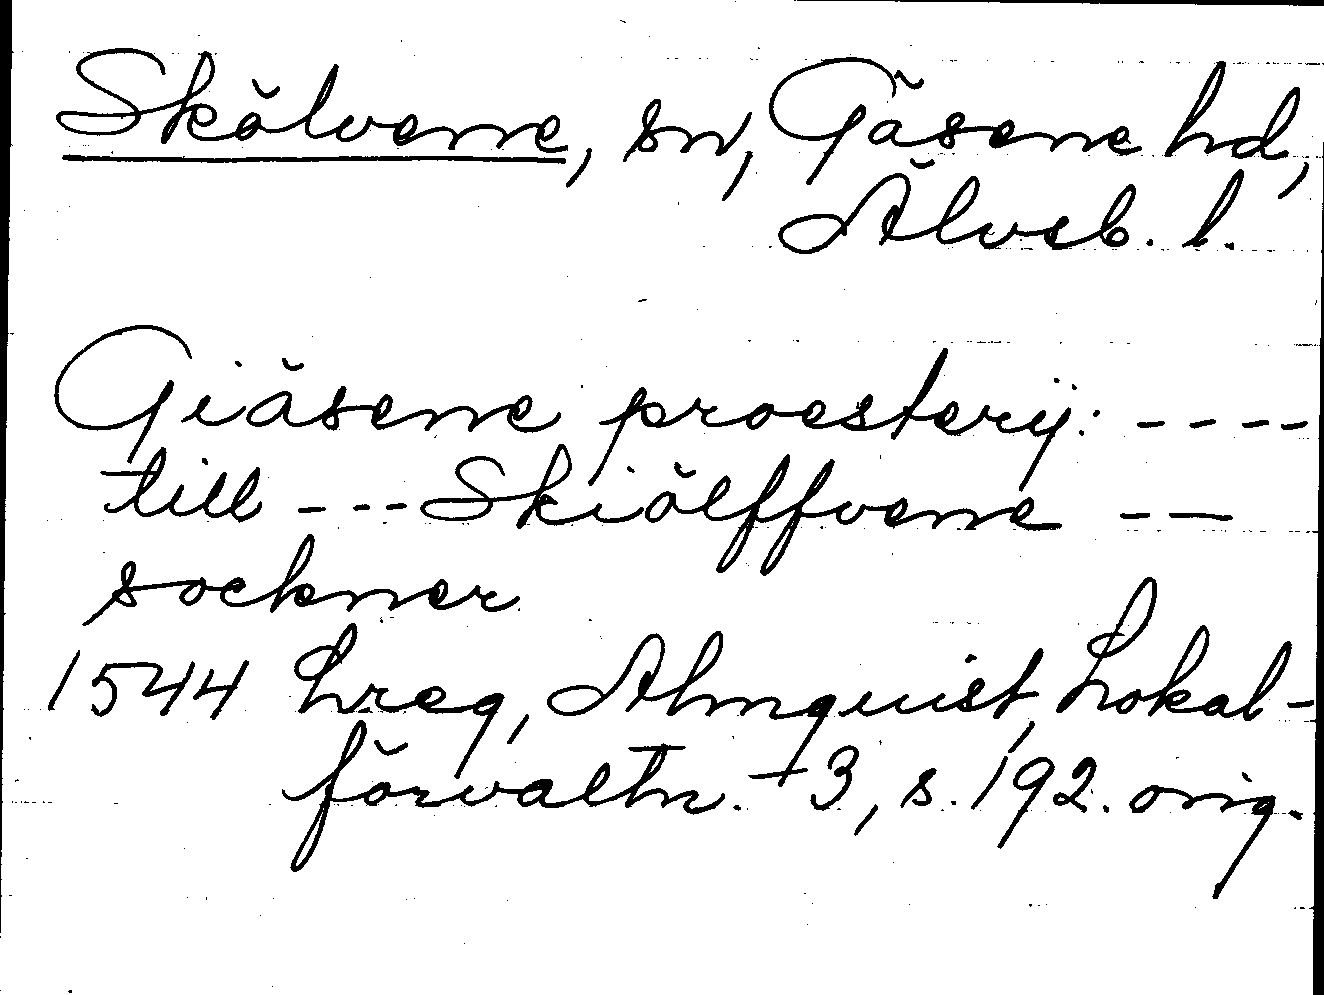 Skölvene, sn, Gäsene hd,
Älvsb. l.
Giäsene proesterij: ----
till --- Skiölffvene --
sockner
1544 hreg, Almquist, Lokal-
förvaltn. +3, s. 192. orig.